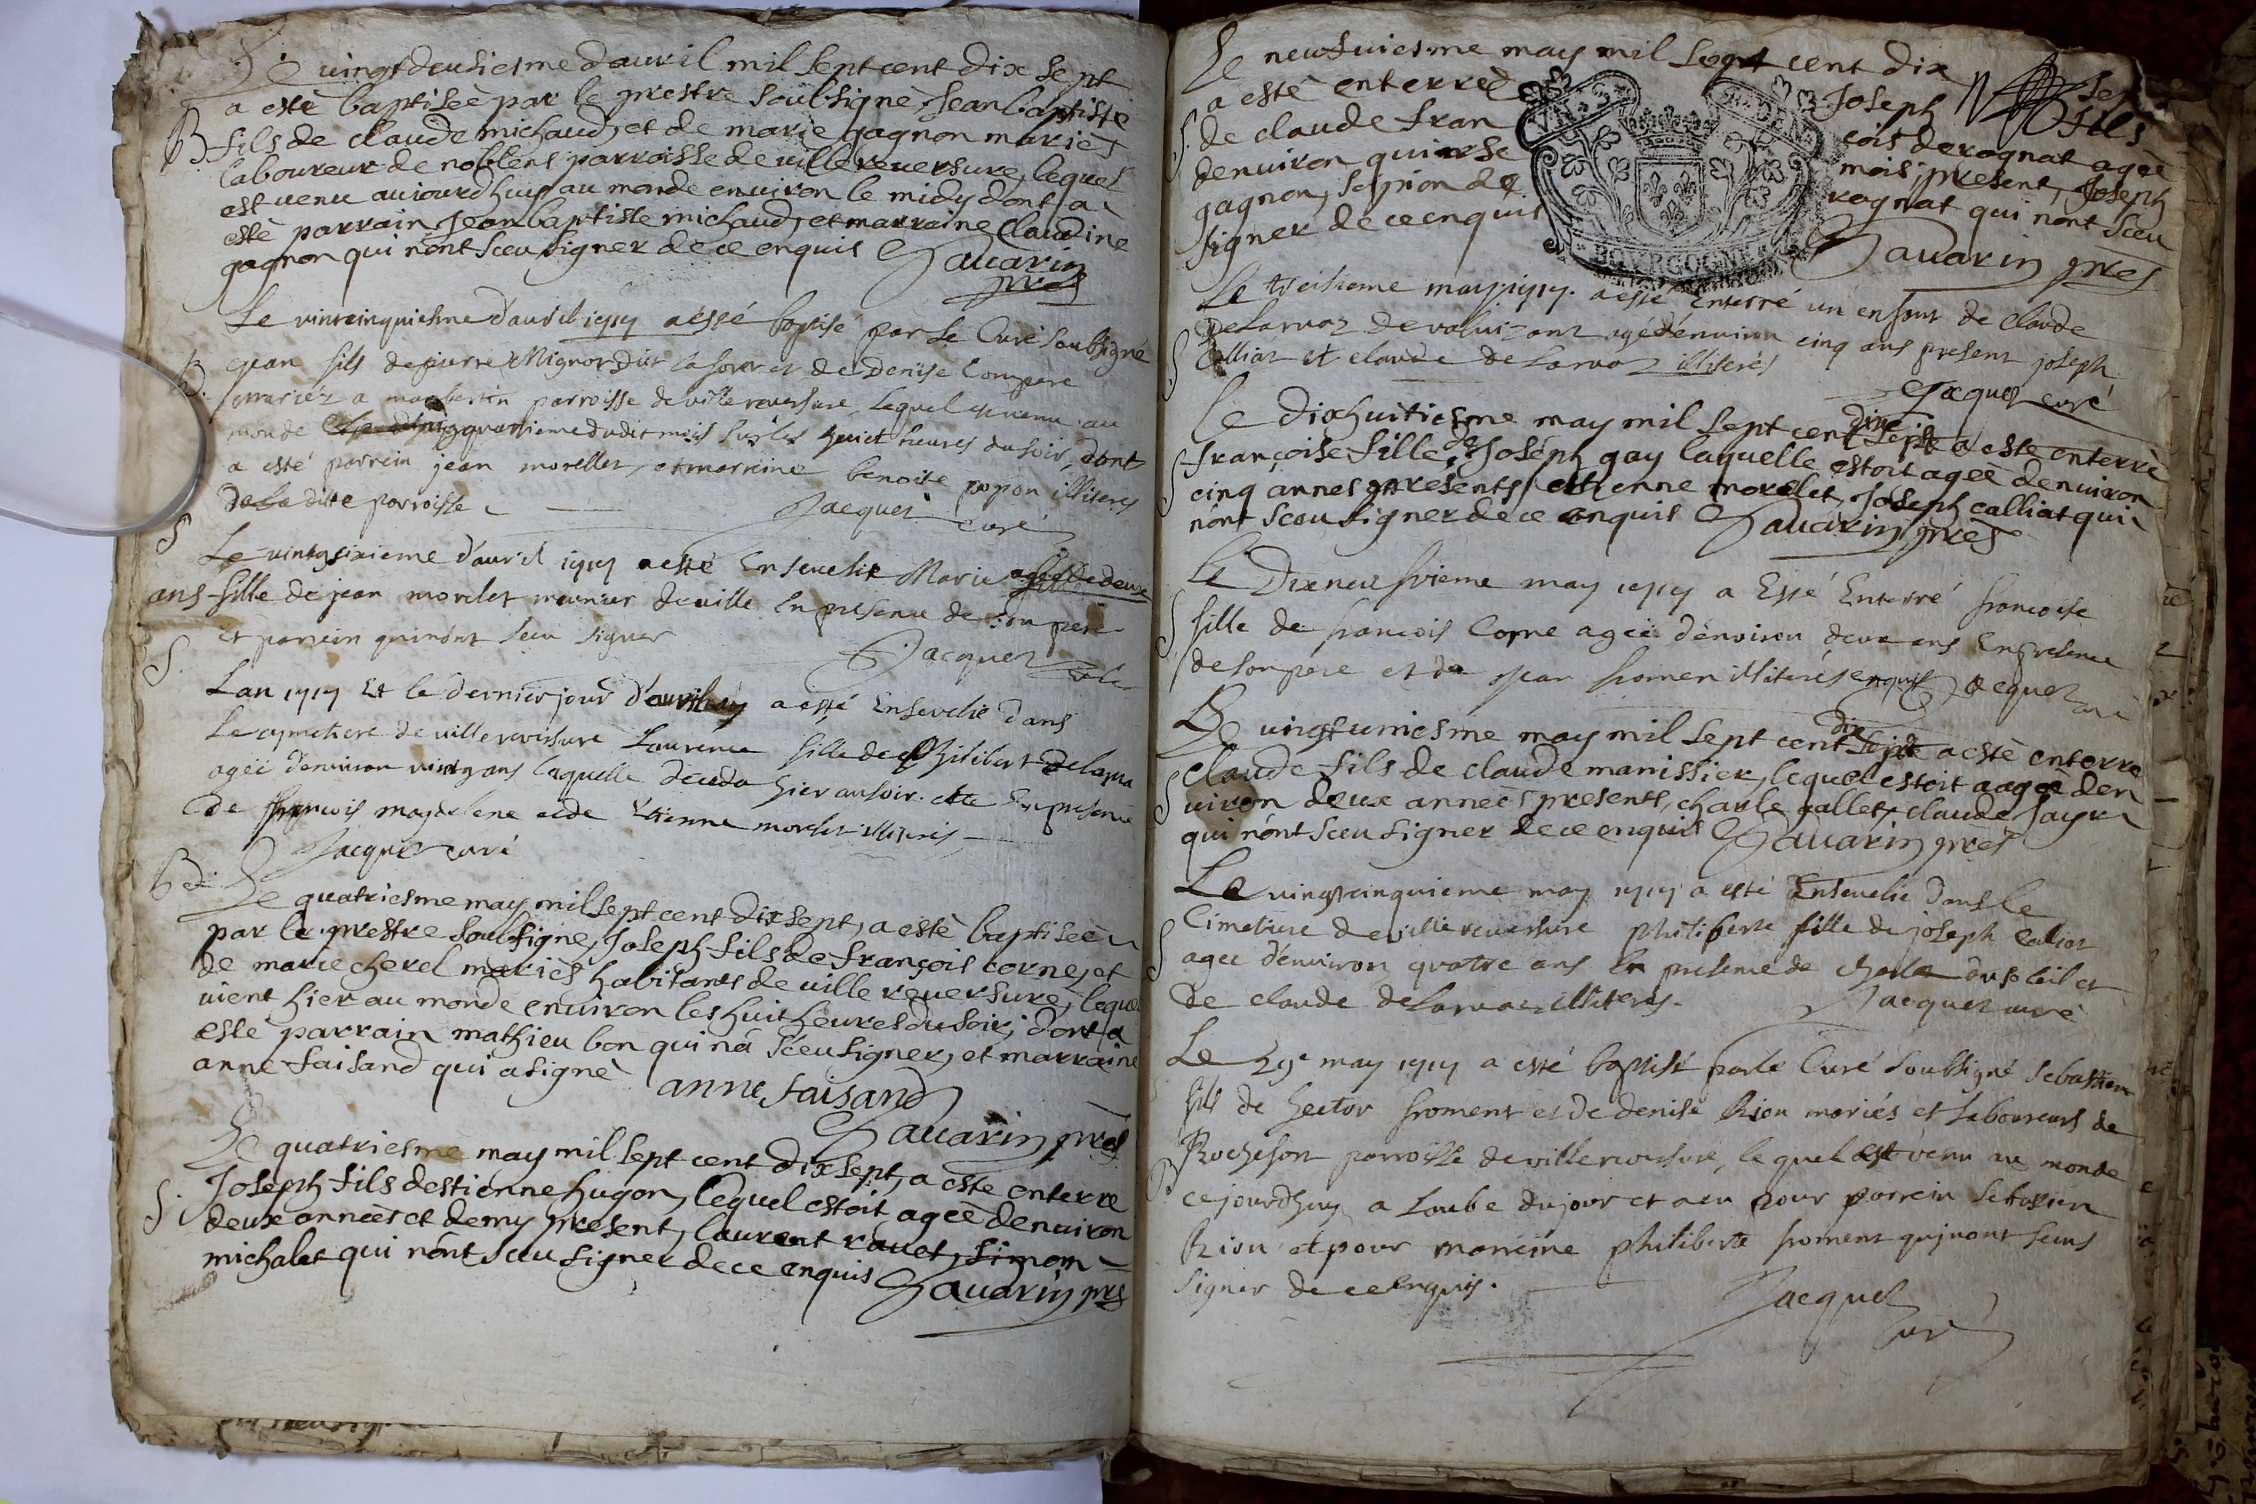 Le vingtdeusiesme dauril mil sept cent dix sept
a estè baptiseè par le prestre soubsignè, Jean baptiste
B. fils de claude michaud, et de marie gagnon mariès
laboureur de noblens parroisse de ville reuersure, lequel
est venu aujourdhuy au monde enuiron le midy dont a
estè parrain Jean baptiste michaud, et marraine claudine
gagnon qui nont sceu signer de ce enquis Sauarin
pres
Le vintcinquiesme d'auril 1717 a esté baptisé par le Curé soubsigné
B. Jean fils de pierre Mignor dit la forest et de Denise Compere
mariéz a parroisse de ville reuersure, lequel est venu au
monde quatrieme dudit mois sur les huict heures du soir, dont
a esté parrein jean morellet, et marreine benoite popon illiterés
de la ditte parroisse
Jacquet curé
S
Le vintgsixieme d'auril 1717 a esté Enseuelie Marie agée de deux
ans fille de jean morelet meunier de ville En presence de son pere
et parrein qui n'ont sceu signer
Jacquet curé
S.
Lan 1717 Et le dernier jour d'auril a esté Enseuelie dans
Le cymetiere de ville reuersure Laurence fille de Philibert
ageé d'enuiron vingt ans laquelle deceda hier au soir En presence
de françois magdelene et de Etienne morelet illiterés
Jacquet curé
B
Le quatriesme may mil sept cent dix sept, a estè baptiseè
par le prestre soubsigne, Joseph fils de françois corne, et
de marie cherel mariès habitants de ville reuersure, leque
vient hier au monde enuiron les huit heures du soir, dont a
este parrain mathieu bon qui nà sceu signer, et marraine
anne faisand qui a signè
anne faisand
Sauarin pres
Le quatriesme may mil sept cent dix sept, a este enterre
S. Joseph fils destienne hugon, lequel estoit ageè denuiron
deux anneès et demy present, laurent rauet, simon
michalet qui nont sceu signer de ce enquis Sauarin prs
Le neufuiesme may mil sept cent dix sep
a estè enterreè Joseph fils
S. de claude fran cois de rognat ageè
denuiron quinse mois, present, Joseph
gagnon, scipion de rognat qui nont sceu
signer de ce enquis
BOURGOGNE
Sauarin pres
Le treisieme may 1717 a esté Enterré un enfant de claude
S DeLarnaz de agé d'enuiron cinq ans present joseph
Calliat et claude de Larnaz illiterés
Jacquet curé
Le dixhuitiesme may mil sept cent dix sept a este enterrè
S françoise fille de Joseph gay laquelle estoit ageè denuiron
cinq annes presents, estienne morelet, Joseph calliat qui
nont sceu signer de ce enquis Sauarin pres
Le Dixneufvieme may 1717 a Esté Enterré francoise
S fille de francois Corne ageé d'enuiron deux ans En presence
de son pere et de jean fromen illiterés enquis Jacquet curé
Le vingtuniesme may mil sept cent dix sept a estè enterre
S claude fils de claude manissier, lequel estoit aageè den
uiron deux anneès presents, charle gallet, claude
qui nont sceu signer de ce enquis Sauarin pres
Le vingtcinquieme may 1717 a esté Enseuelie dans le
S Cimetiere de ville reuersure philiberte fille de joseph Caliat
agee d'enuiron quatre ans En presence de charle dusoleil et
de claude deLarnaz illiterés.
Jacquet curé
Le 29e may 1717 a esté baptisé par le Curé soubsigné Sebastien
fils de hector froment et de denise Rion mariés et laboureurs de
B Rochefort parroisse de ville reuersure, le quel est venu au monde
cejourdhuy a Laube du jour et a eu pour parrein Sebastien
Rion et pour mareine philiberte froment qui n'ont sceus
signer de ce Enquis.
Jacquet
curé